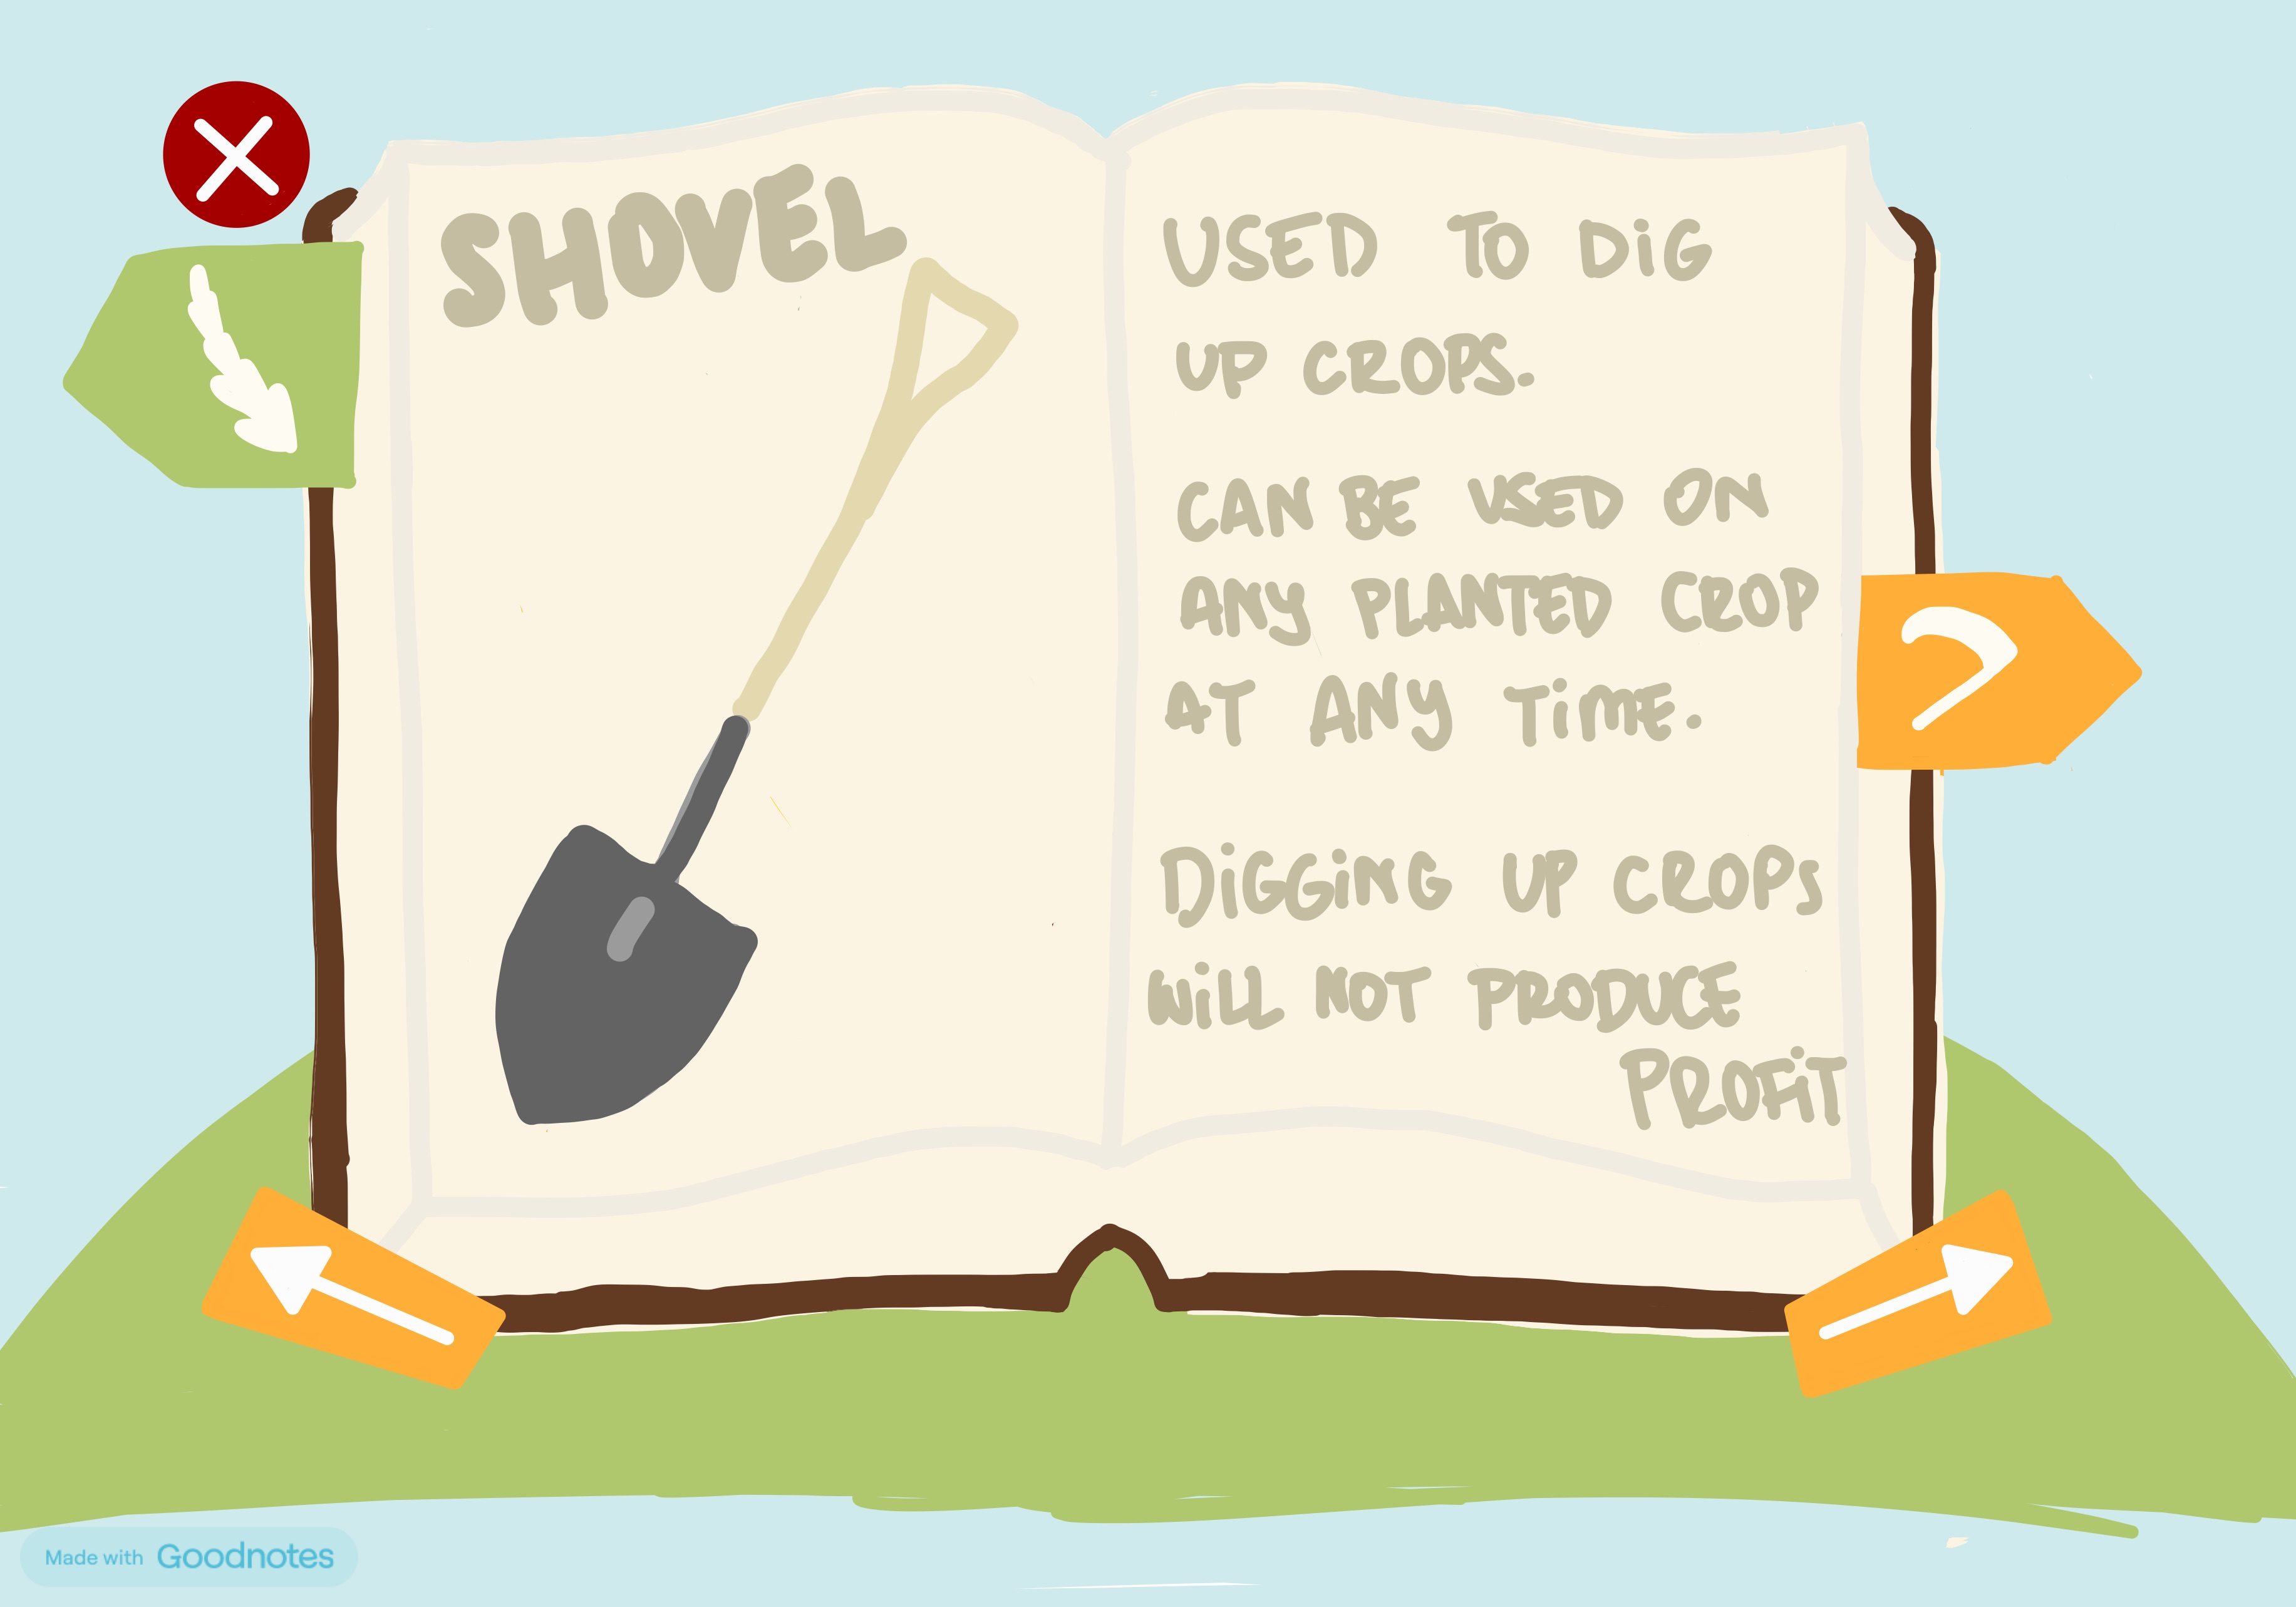 SHOVEL
USED TO DiG
UP CROPS.
CAN BE USED ON
ANY PLANTED CROP
AT ANY TiME.
DiGGiNG UP CROPS
WiLL NOT PRODUCE
PROFiT
Made with Goodnotes